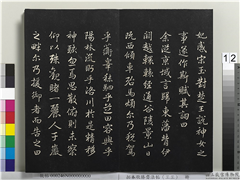 妃感宋玉對楚王說神女之
事遂作斯賦其詞曰
余從京域言歸東藩背伊
闕越轘轅經通谷陵景山日
既西傾車殆馬煩爾乃稅駕
乎蘅皋秣駟乎芝田容與乎
陽林流眄乎洛川於是精移
神駭忽焉思散俯則未察
仰以殊觀睹一麗人于巖
之畔爾乃援御者而告之曰